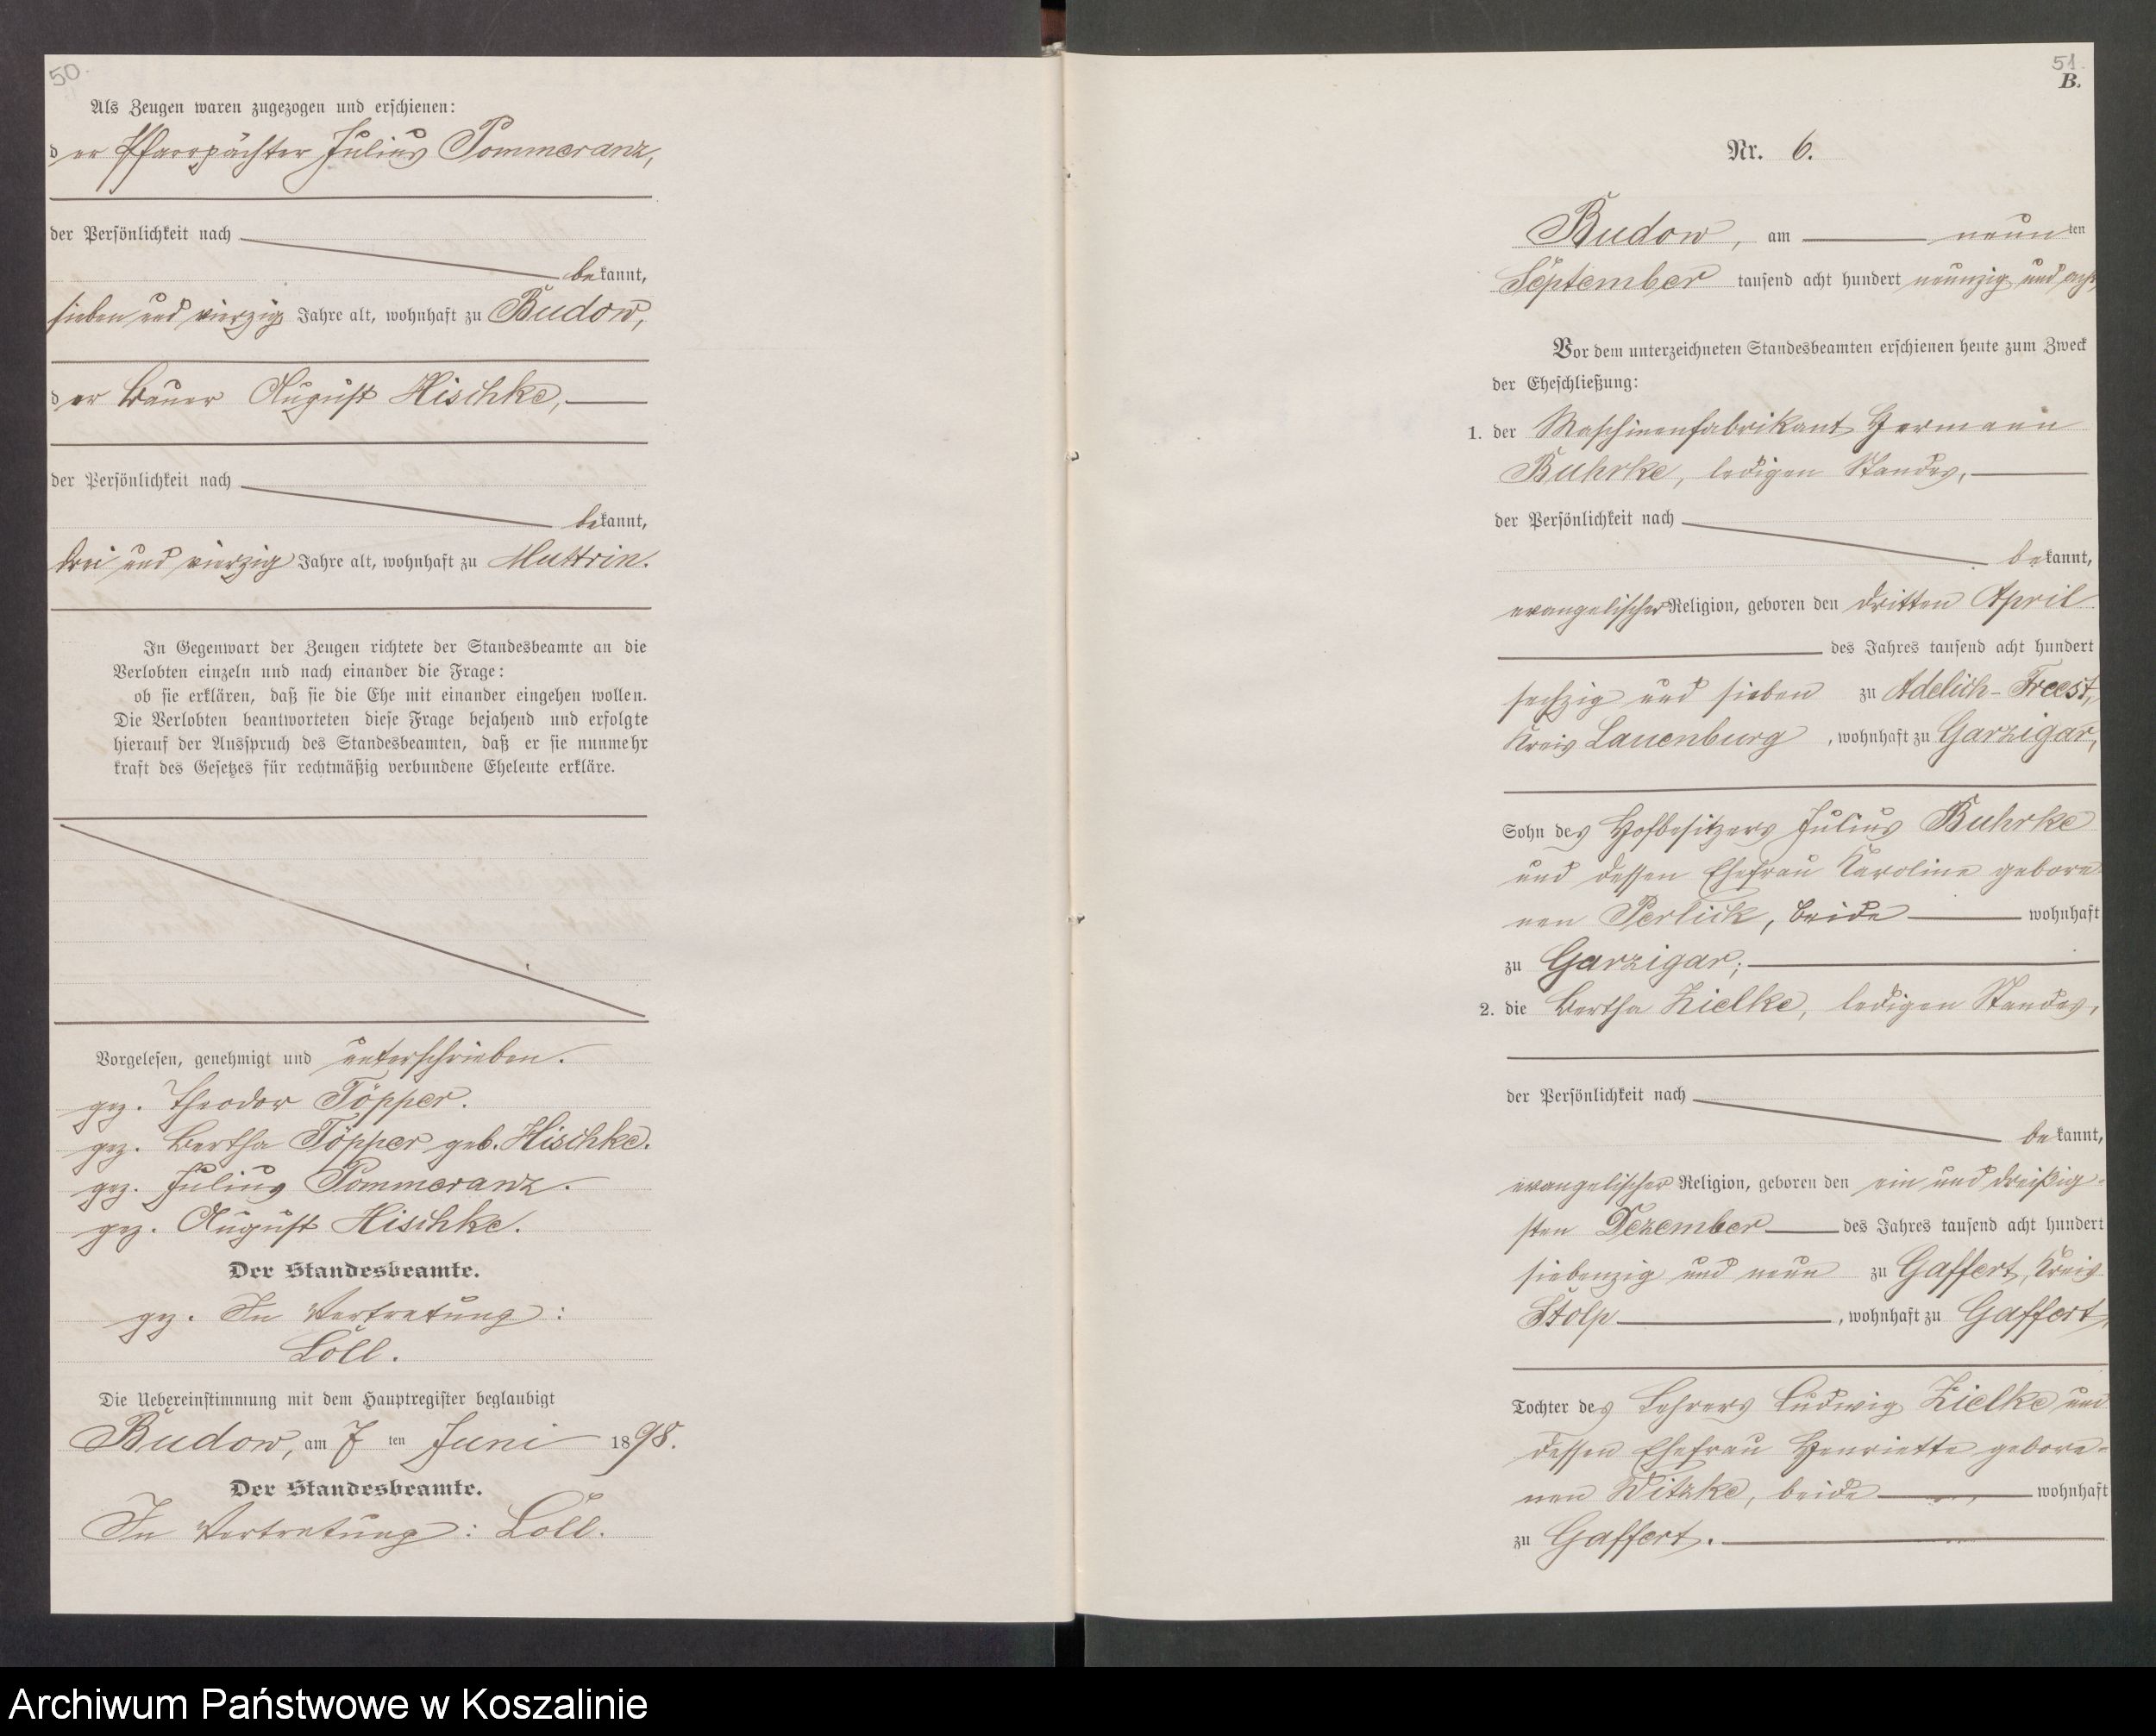 50.
Als Zeugen waren zugezogen und erschienen:
der Pfarrpächter Julius Pommeranz,
der Persönlichkeit nach
bekannt,
sieben und vierzig Jahre alt, wohnhaft zu Budow,
der Bauer August Hischke,
der Persönlichkeit nach
bekannt,
drei und vierzig Jahre alt, wohnhaft zu Muttrin.
In Gegenwart der Zeugen richtete der Standesbeamte an die
Verlobten einzeln und nach einander die Frage:
ob sie erklären, daß sie die Ehe mit einander eingehen wollen.
Die Verlobten beantworteten diese Frage bejahend und erfolgte
hierauf der Ausspruch des Standesbeamten, daß er sie nunmehr
kraft des Gesetzes für rechtmäßig verbundene Eheleute erkläre.
Vorgelesen, genehmigt und unterschrieben.
gez. Theodor Töpper.
gez. Bertha Töpper geb. Hischke.
gez. Julius Pommeranz.
gez. August Hischke.
Der Standesbeamte.
gez. In Vertretung:
Löll.
Die Uebereinstimmung mit dem Hauptregister beglaubigt
Budow, am 7 ten Juni 1898.
Der Standesbeamte.
In Vertretung: Löll.
51.
B.
Nr. 6.
Budow, am neunten
September tausend acht hundert neunzig und acht
Vor dem unterzeichneten Standesbeamten erschienen heute zum Zweck
der Eheschließung:
1. der Maschinenfabrikant Hermann
Buhrke, ledigen Standes,
der Persönlichkeit nach
bekannt,
evangelischer Religion, geboren den dritten April
des Jahres tausend acht hundert
sechzig und sieben zu Adelich-Freest,
Kreis Lauenburg, wohnhaft zu Garzigar,
Sohn des Hofbesitzers Julius Buhrke
und dessen Ehefrau Karoline gebore
nen Perlick, beide wohnhaft
zu Garzigar;
2. die Bertha Zielke, ledigen Standes,
der Persönlichkeit nach
bekannt,
evangelischer Religion, geboren den ein und dreißig-
sten Dezember des Jahres tausend acht hundert
siebenzig und neun zu Gaffert, Kreis
Stolp, wohnhaft zu Gaffert,
Tochter des Lehrers Ludwig Zielke und
dessen Ehefrau Henriette gebore-
nen Witzke, beide wohnhaft
zu Gaffert.
Archiwum Państwowe w Koszalinie